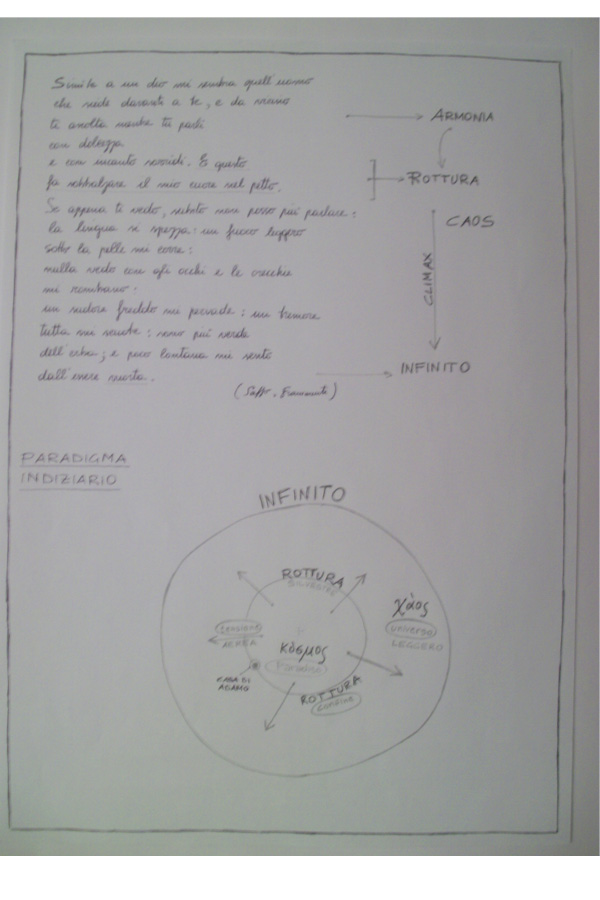 Simile a un dio mi sembra quell'uomo
che siede davanti a te, e da vicino
ti ascolta mentre tu parli
con dolcezza
e con incanto sorridi. E questo
fa sobbalzare il mio cuore nel petto.
Se appena ti vedo, subito non posso più parlare:
la lingua si spezza: un fuoco leggero
sotto la pelle mi corre:
nulla vedo con gli occhi e le orecchie
mi rombano:
un sudore freddo mi pervade: un tremore
tutta mi scuote: sono più verde
dell'erba; e poco lontana mi sento
dall'essere morta.
(Saffo, Frammento)
ARMONIA
ROTTURA
CAOS
CLIMAX
INFINITO
PARADIGMA
INDIZIARIO
INFINITO
ROTTURA
SILVESTRE
χàos
universo
LEGGERO
tensione
AEREA
κόσμος
Paradiso
CASA DI
ADAMO
ROTTURA
confine